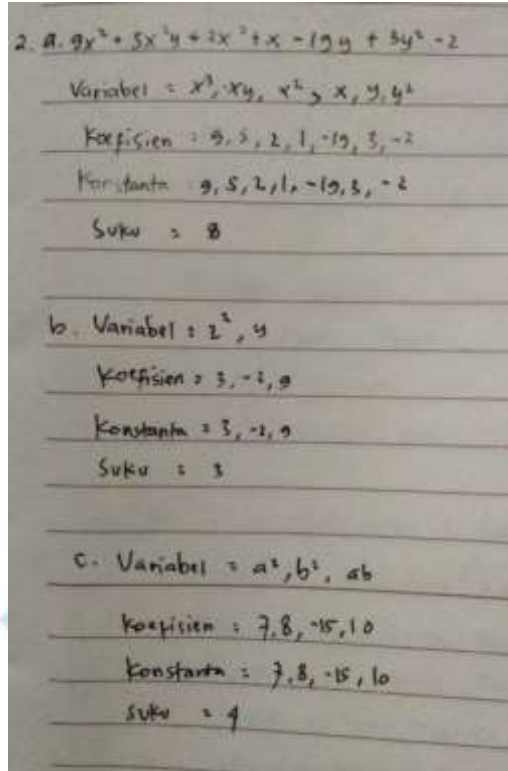 2. a. 9x² + 5x²y + 2x² + x - 19y + 3y² - 2
Variabel = x³, xy, x², x, y, y²
Koefisien : 9, 5, 2, 1, -19, 3, -2
Konstanta 9, 5, 2, 1, -19, 3, -2
Suku = 8
b. Variabel : 2², y
Koefisien = 3, -2, 9
Konstanta = 3, -2, 9
Suku = 3
c. Variabel = a², b², ab
Koefisien : 7, 8, -15, 10
Konstanta : 7, 8, -15, 10
Suku = 4